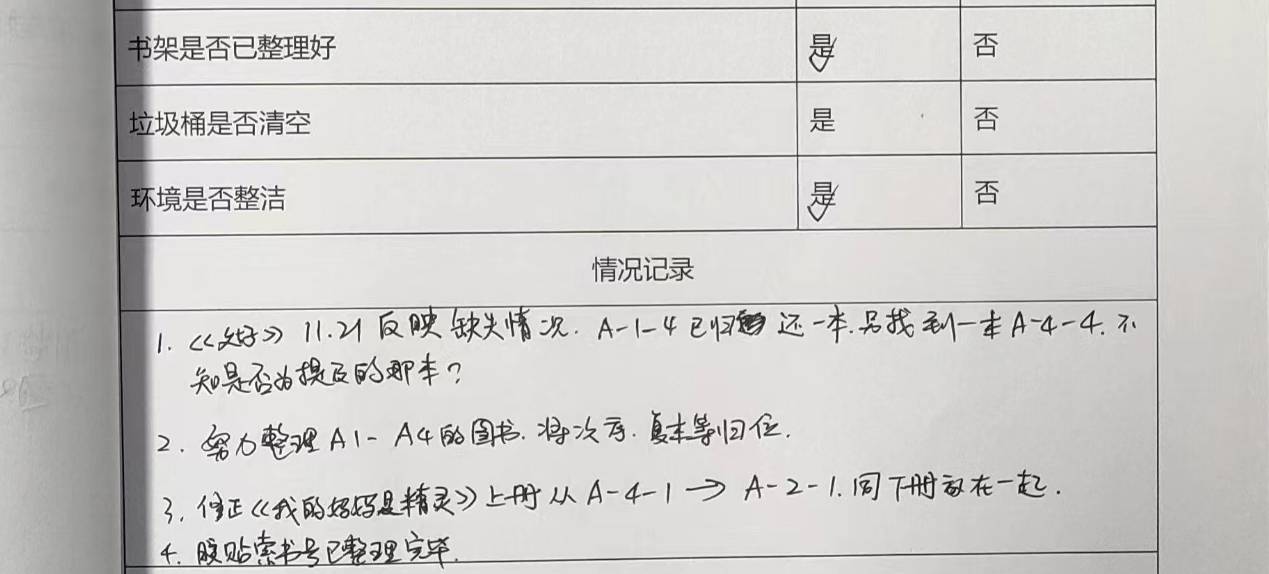 书架是否已整理好 是 否
垃圾桶是否清空 是 否
环境是否整洁 是 否
情况记录
1. 《好》 11.21 反映缺失情况. A-1-4 已归还一本. 只找到一本 A-4-4. 不
知是否为提及的那本?
2. 努力整理 A1- A4 的图书. 将次序. 复本等归位.
3. 修正《我的妈妈是精灵》上册从 A-4-1 → A-2-1. 同下册放在一起.
4. 胶贴索书号已整理完毕.